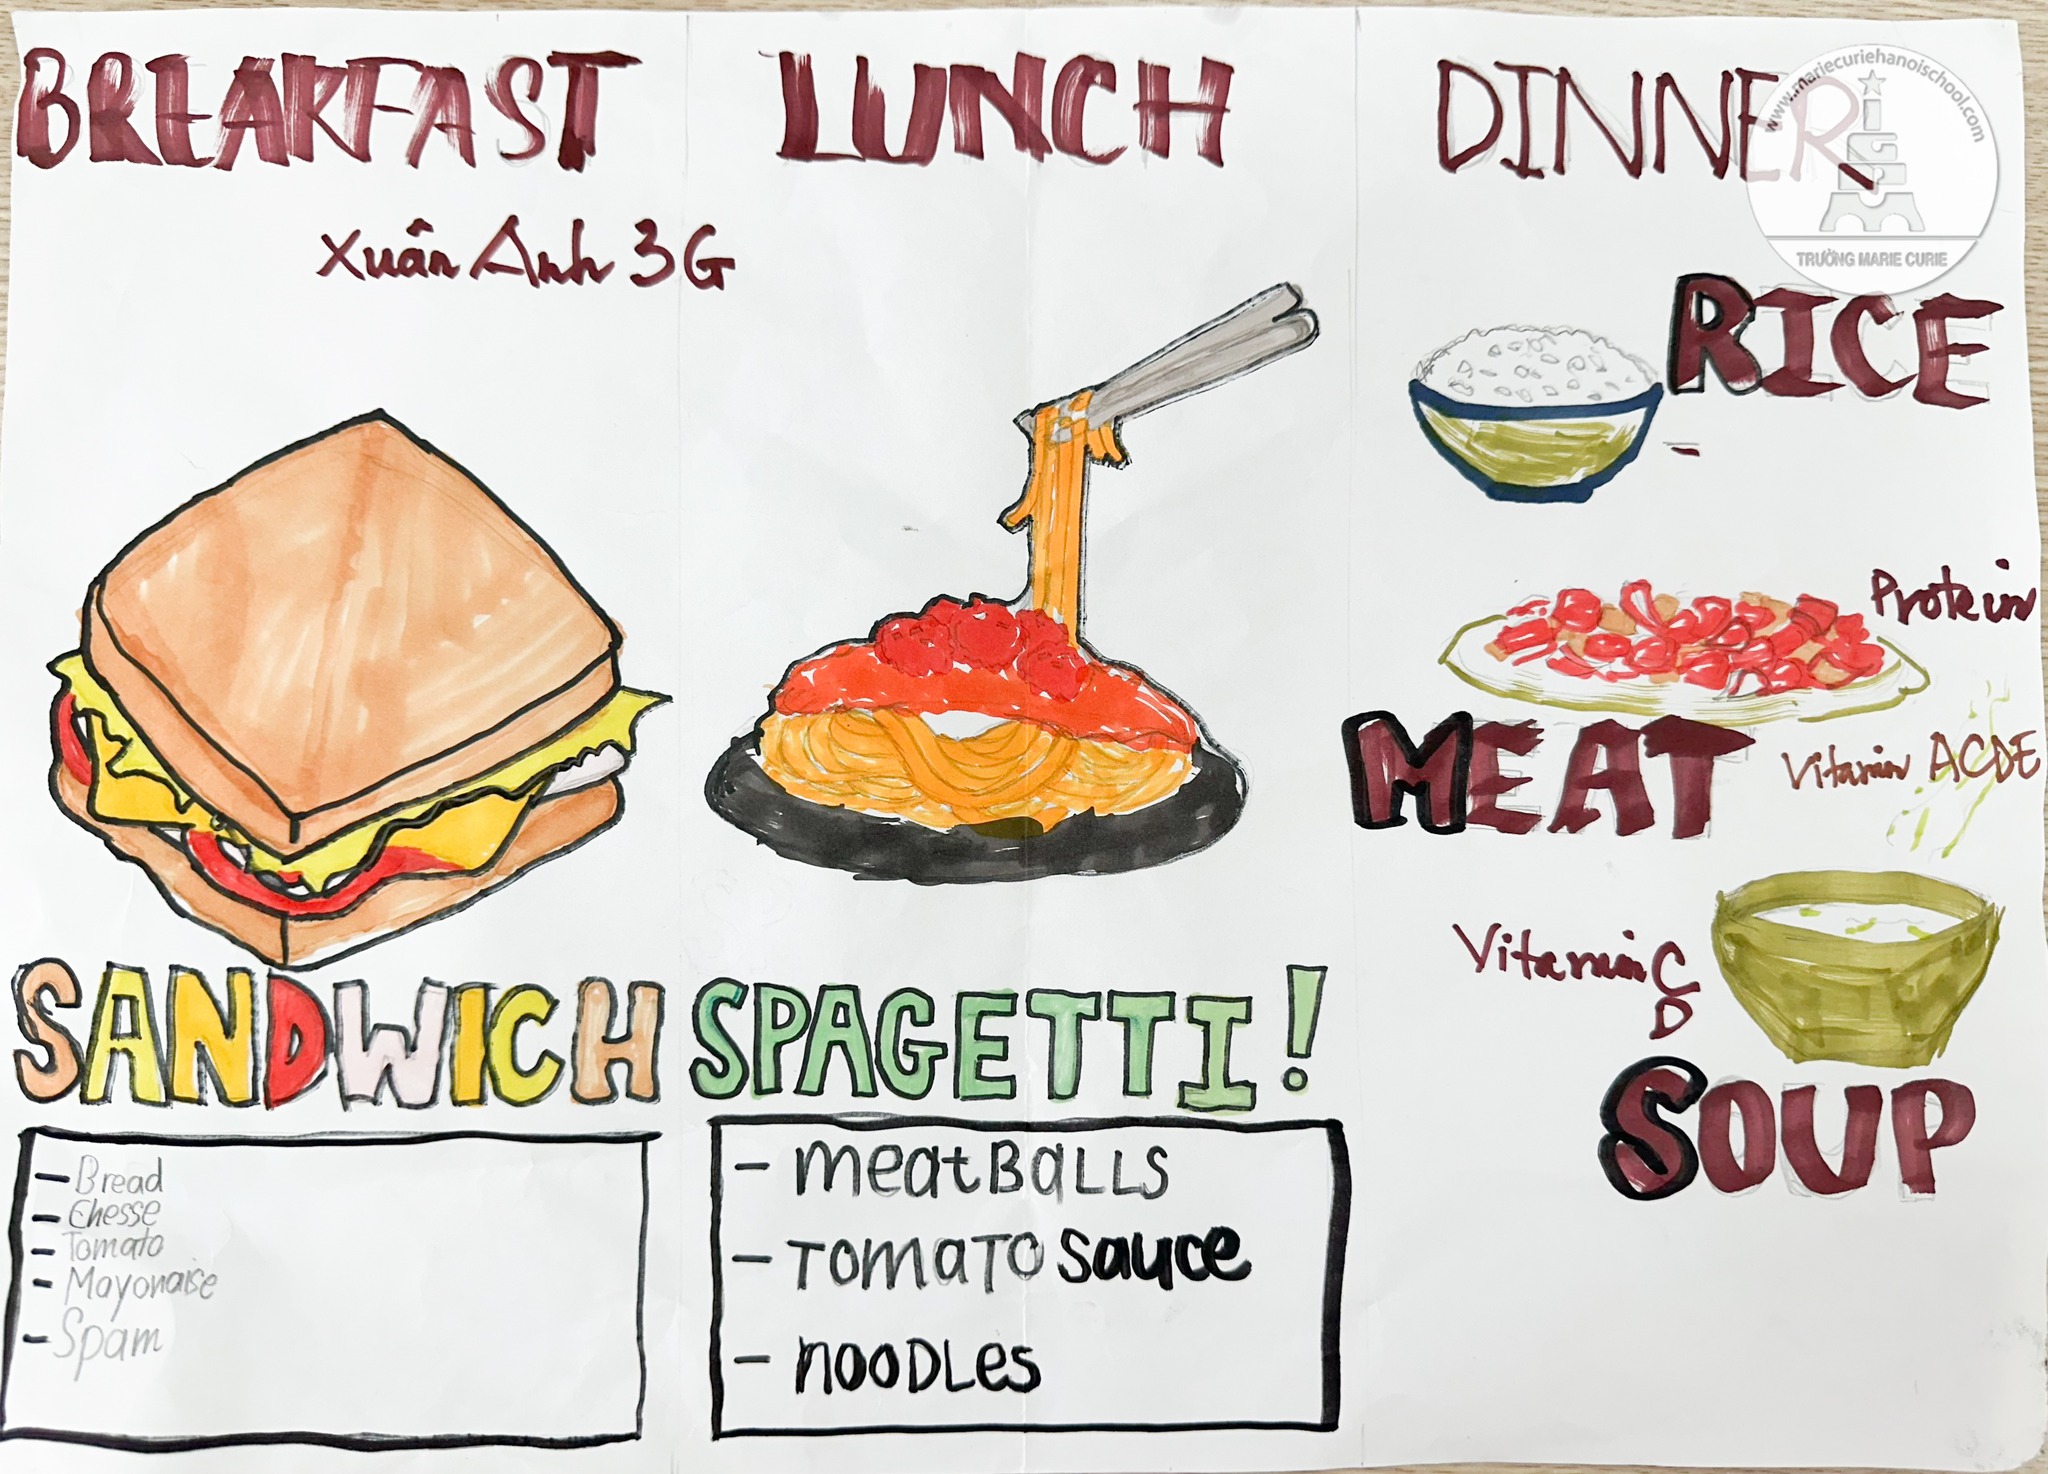 BREAKFAST
Xuân Anh 3G
SANDWICH
- Bread
- Chesse
- Tomato
- Mayonaise
- Spam
LUNCH
SPAGETTI!
- meatBaLLS
- TomaTo sauce
- nooDLes
DINNER
RICE
Protein
MEAT
Vitamin ACDE
Vitamin C
D
SOUP
www.mariecuriehanoischool.com
TRƯỜNG MARIE CURIE